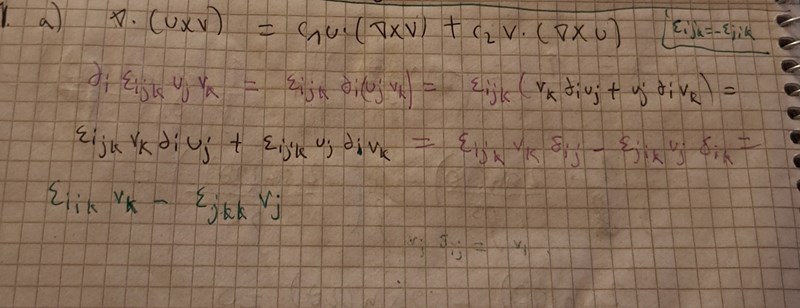 1. a) ∇·(u×v) = c₁u·(∇×v) + c₂v·(∇×u) εijk=-εjik
∂i εijk uj vk = εijk ∂i(uj vk) = εijk (vk ∂i uj + uj ∂i vk) =
εijk vk ∂i uj + εijk uj ∂i vk = εijk vk δij - εjik vj δik =
εiik vk - εjkk vj
vj δij = vi